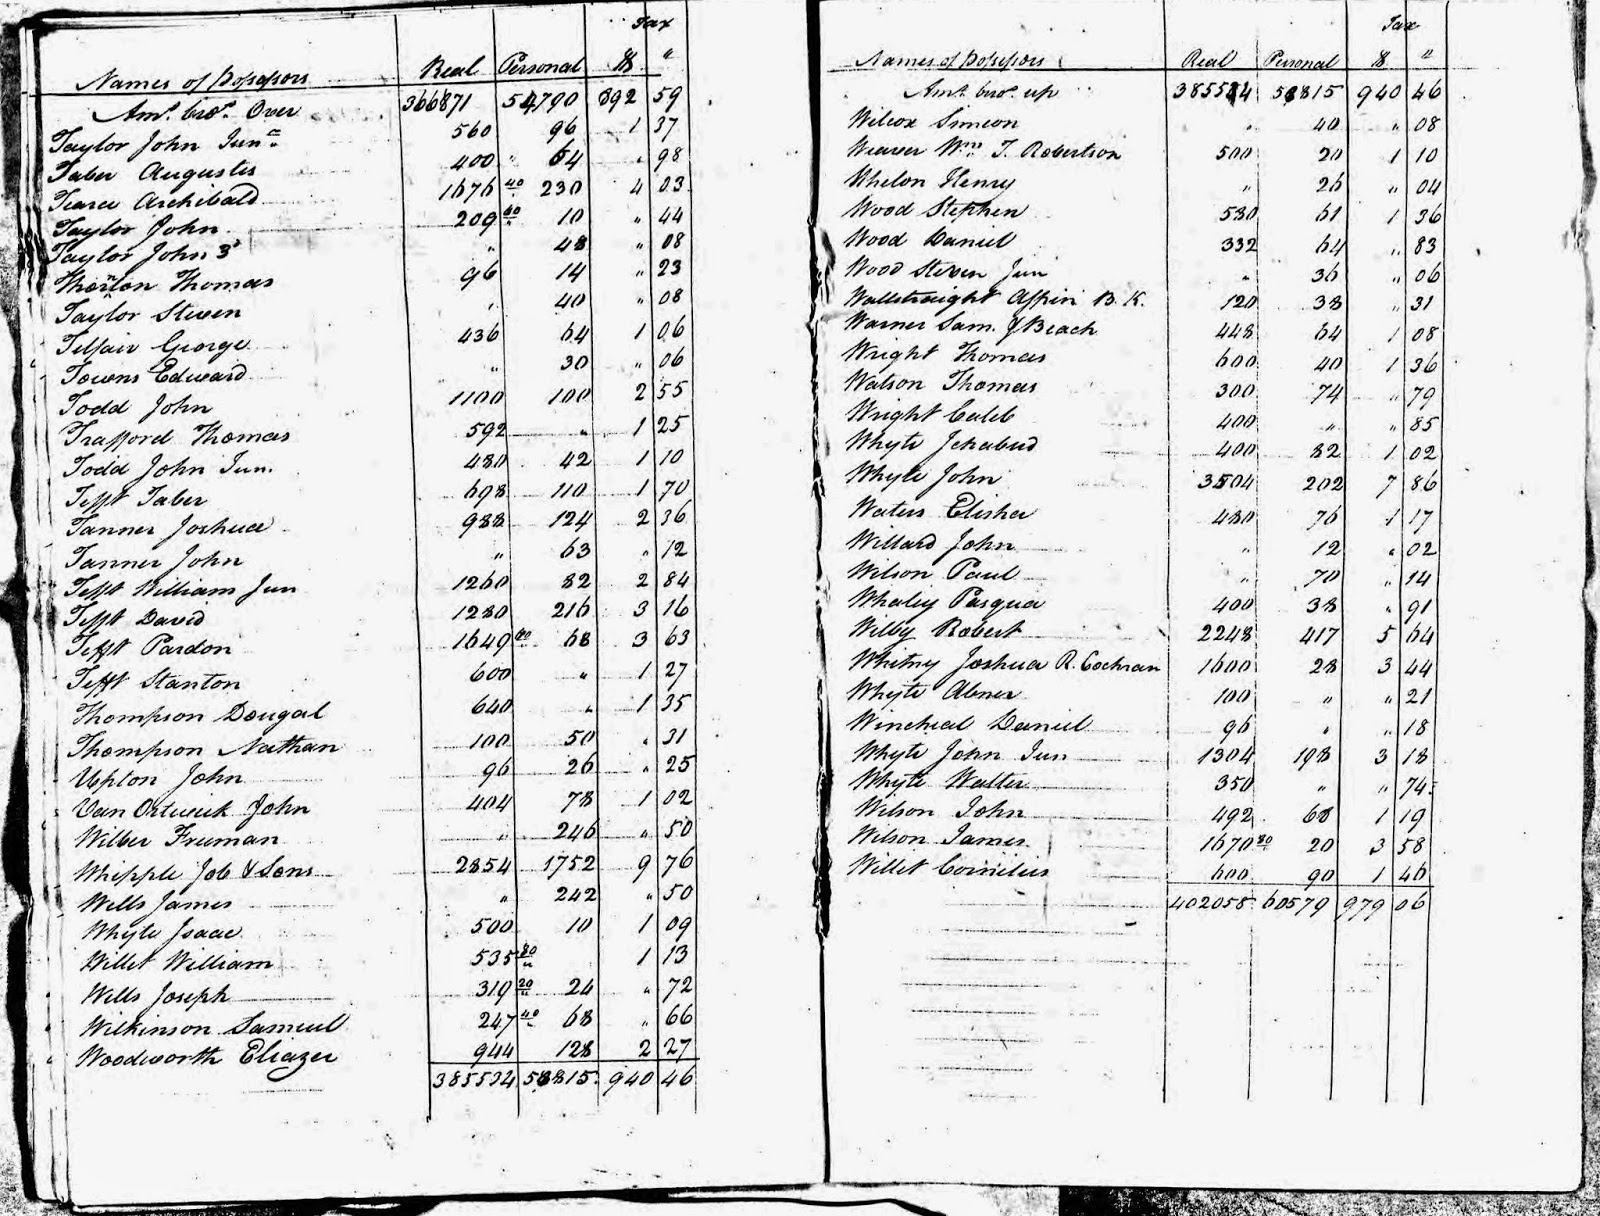 Tax
Names of Possessors Real Personal $ "
Amt. bro. Over 366871 54790 892 59
Taylor John Junr. 560 96 1 37
Taber Augustus 400 " 64 " 98
Tearce Archibald 1676 40 230 4 03
Taylor John 209 60 10 " 44
Taylor John 3d " 48 " 08
Thornton Thomas 96 14 " 23
Taylor Steven " 40 " 08
Telfair George 436 64 1 06
Towns Edward " 30 " 06
Todd John 1100 100 2 55
Trafford Thomas 592 " 1 25
Todd John Jun. 480 42 1 10
Tefft Taber 698 110 1 70
Tanner Joshua 988 124 2 36
Tanner John " 63 " 12
Tefft William Jun 1260 82 2 84
Tefft David 1280 216 3 16
Tefft Pardon 1649 80 68 3 63
Tefft Stanton 600 " 1 27
Thompson Dougal 640 " 1 35
Thompson Nathan 100 50 " 31
Upton John 96 26 " 25
Van Ortwick John 404 78 1 02
Wilber Freeman " 246 " 50
Whipple Job & Sons 2854 1752 9 76
Wells James " 242 " 50
Whyte Isaac 500 10 1 09
Willet William 535 80 1 13
Wells Joseph 319 20 24 " 72
Wilkinson Samuel 247 40 68 " 66
Woodworth Eliazer 944 128 2 27
385534 58815 940 46
Tax
Names of Possessors Real Personal $ "
Amt. bro. up 385534 58815 940 46
Wilcox Simeon " 40 " 08
Weaver Wm. T. Robertson 500 20 1 10
Whelon Henry " 26 " 04
Wood Stephen 580 61 1 36
Wood Daniel 332 64 " 83
Wood Steven Jun " 36 " 06
B. K. 120 38 " 31
Warner Sam. J Beach 448 64 1 08
Wright Thomas 600 40 1 36
Watson Thomas 300 74 " 79
Wright Caleb 400 " " 85
Whyte Jehabud 400 82 1 02
Whyte John 3504 202 7 86
Waters Elisha 480 76 1 17
Willard John " 12 " 02
Wilson Paul " 70 " 14
Whaley Pasqua 400 38 " 91
Wilby Robert 2248 417 5 64
Whitney Joshua R. Cochran 1600 28 3 44
Whyte Abner 100 " " 21
Wincheal Daniel 96 " " 18
Whyte John Jun 1304 198 3 18
Whyte Walter 350 " " 74
Wilson John 492 68 1 19
Wilson James 1670 80 20 3 58
Willet Cornelius 600 90 1 46
402058 60579 979 06